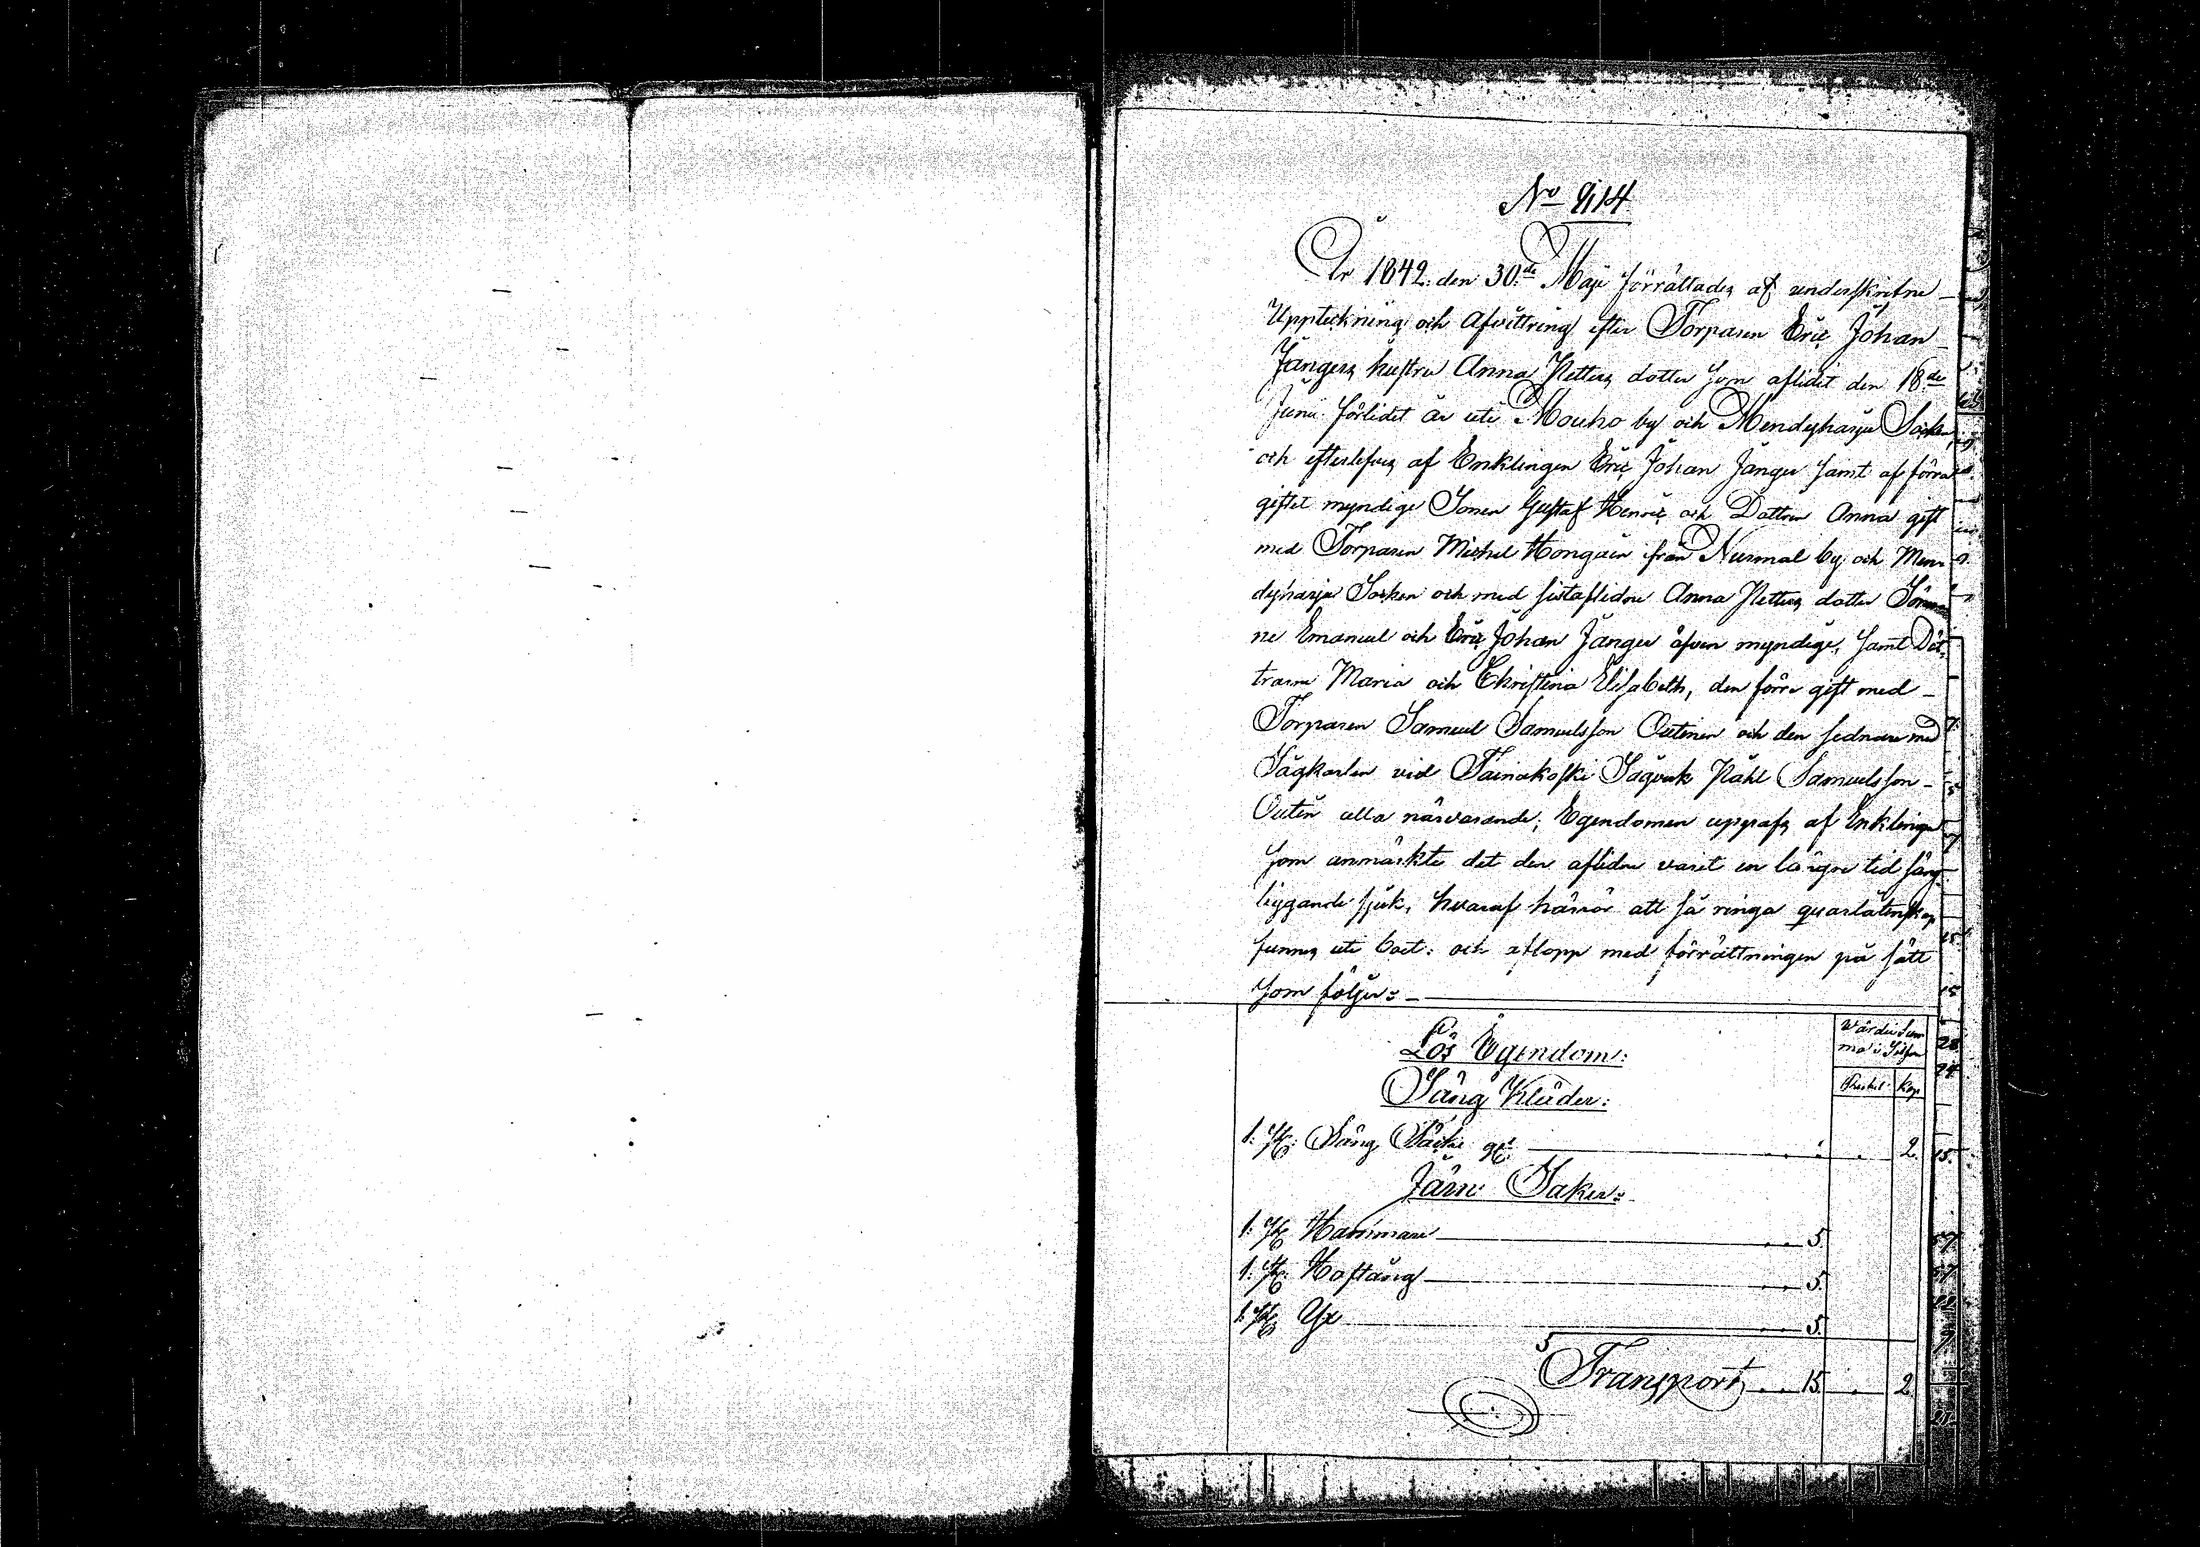 No 914
År 1842. den 30de Maji förrättades af underskrifne
Uppteckning och Afvittring efter Torparen Eric Johan
Jangers hustru Anna Petters dotter som aflidit den 18de
Junii förlidet år uti Mouho by och Mendyharju Socken
och efterlefves af Enklingen Eric Johan Janger samt af förra
giftet myndige Sonen Gustaf Henric och Dottren Anna gift
med Torparen Michel Hongain från Nurmal by och Men-
dyharju Socken och med sistaflidne Anna Petters dotter Söner
ne Emanuel och Eric Johan Janger äfven myndige, samt Döt-
trarna Maria och Christina Elisabeth, den förra gift med
Torparen Samuel Samuelsson Outinen och den sednare med
Sågkarlen vid Tainakoski Sågverk Påhl Samuelsson
Outin alla närvarande; Egendomen uppgafs af Enklingen
som anmärkte det den aflidne varit en längre tid säng-
liggande sjuk, hvaraf härrör att så ringa qvarlåtenskap
funnes uti boet: och aflopp med förrättningen på sätt
som följer:
Lös Egendom:
Wärdes Sum
ma i Silfver
Rubel Kop.
Säng Kläder:
1. St. Säng Täcke gl. 2.
Järn Saker:
1. St. Hammare 5.
1. St. Hoftång 5.
1. St. Yx 5.
Transport 15. 2